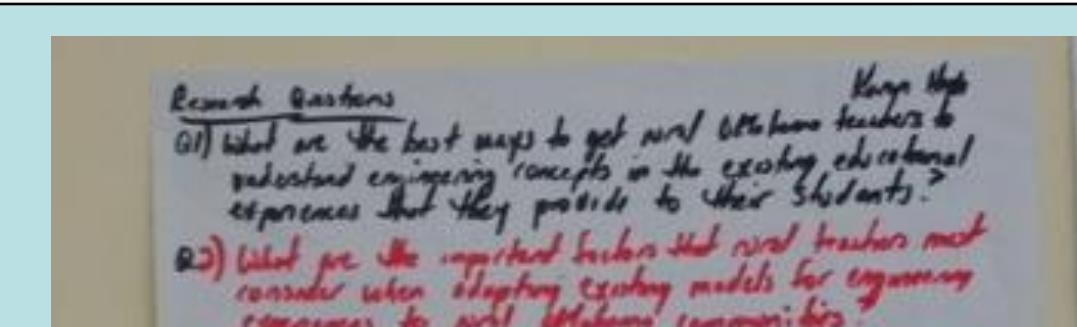 Research Questions
Q1) What are the best ways to get rural Oklahoma teachers to
understand engineering concepts in the existing educational
experiences that they provide to their students?
Q2) What are the important factors that rural teachers must
consider when adapting existing models for engineering
experiences to rural Oklahoma communities?